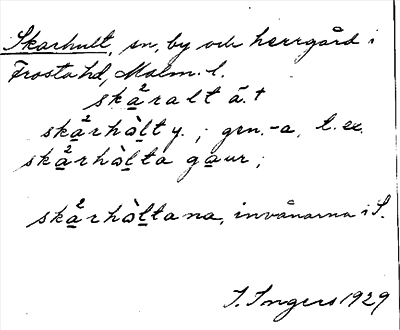 Skarhult, sn, by och herrgård i
Frosta hd, Malm. l.
ską̊²ralt ä.†
ską̊²rhàlt y. ; gen. -a, t. ex.
ską̊²rhàlta gaur ;
ską̊²rhàltana, invånarna i S.
I. Ingers 1929